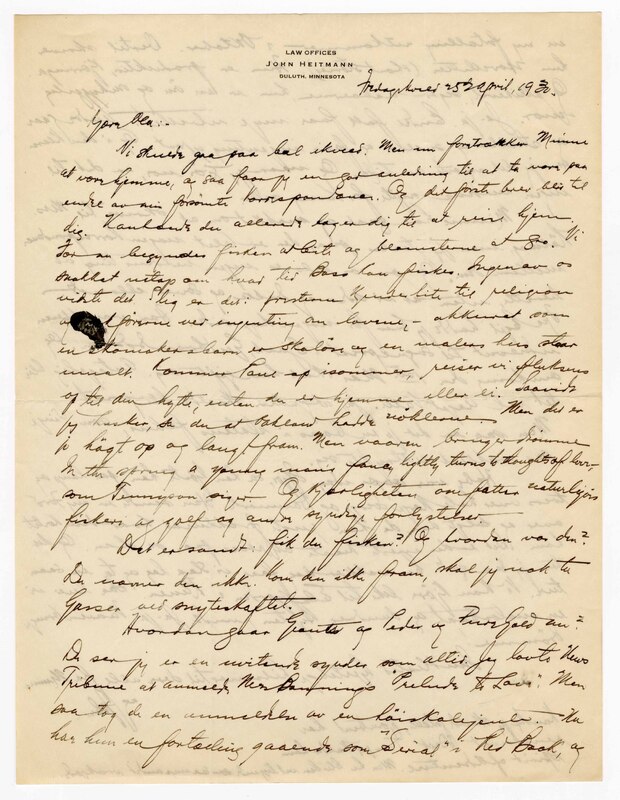 LAW OFFICES
JOHN HEITMANN
DULUTH, MINNESOTA
Fredagskveld 25de april, 1930.
Gjæve Ola:-
Vi skulde gaa paa bal ikveld. Men nu foretrækker Minnie
at være hjemme, og saa faar jeg en god anledning til at ta vare paa
endel av min forsømte korrespondance. Og det første brev blir til
dig. Kanhænde du allerede lager dig til at reise hjem.
For nu begynder fisken at bite og blomsterne at gro. Vi
snakket netop om hvad tid Bass kan fiskes. Ingen av os
vidste det. Slig er det: prestene kjender lite til religion
ved ingenting om lovene, - akkurat som
en skomakersbarn er skoløs og en malers hus staar
umalt. Kommer Paul op isommer, reiser vi
op til din hytte, enten du er hjemme eller ei. Saavidt
jeg husker, sa du at Oakland hadde nøklerne. Men det er
jo høgt op og langt fram. Men vaaren bringer drømme
In the spring a young mans fancy lightly turns to thoughts of love-
som Tennyson siger. Og kjærligheten omfatter naturligvis
fiskeri og golf og andre syndige forlystelser.
Det er sandt: fik du fisken? Og hvordan var den?
Du nævner den ikke. Kom den ikke fram, skal jeg nok ta
Gasser ved snyteskaftet.
Hvordan gaar Giants og Peder og Pure Gold nu?
Du ser jeg er en uvitende synder som altid. Jeg lovte News
Tribune at anmelde Mrs Bannings "Prelude to Love". Men
saa tog de en anmeldelse av en høiskolejente. Nu
har hun en fortælling gaaende som "Serial" i Red Book, og